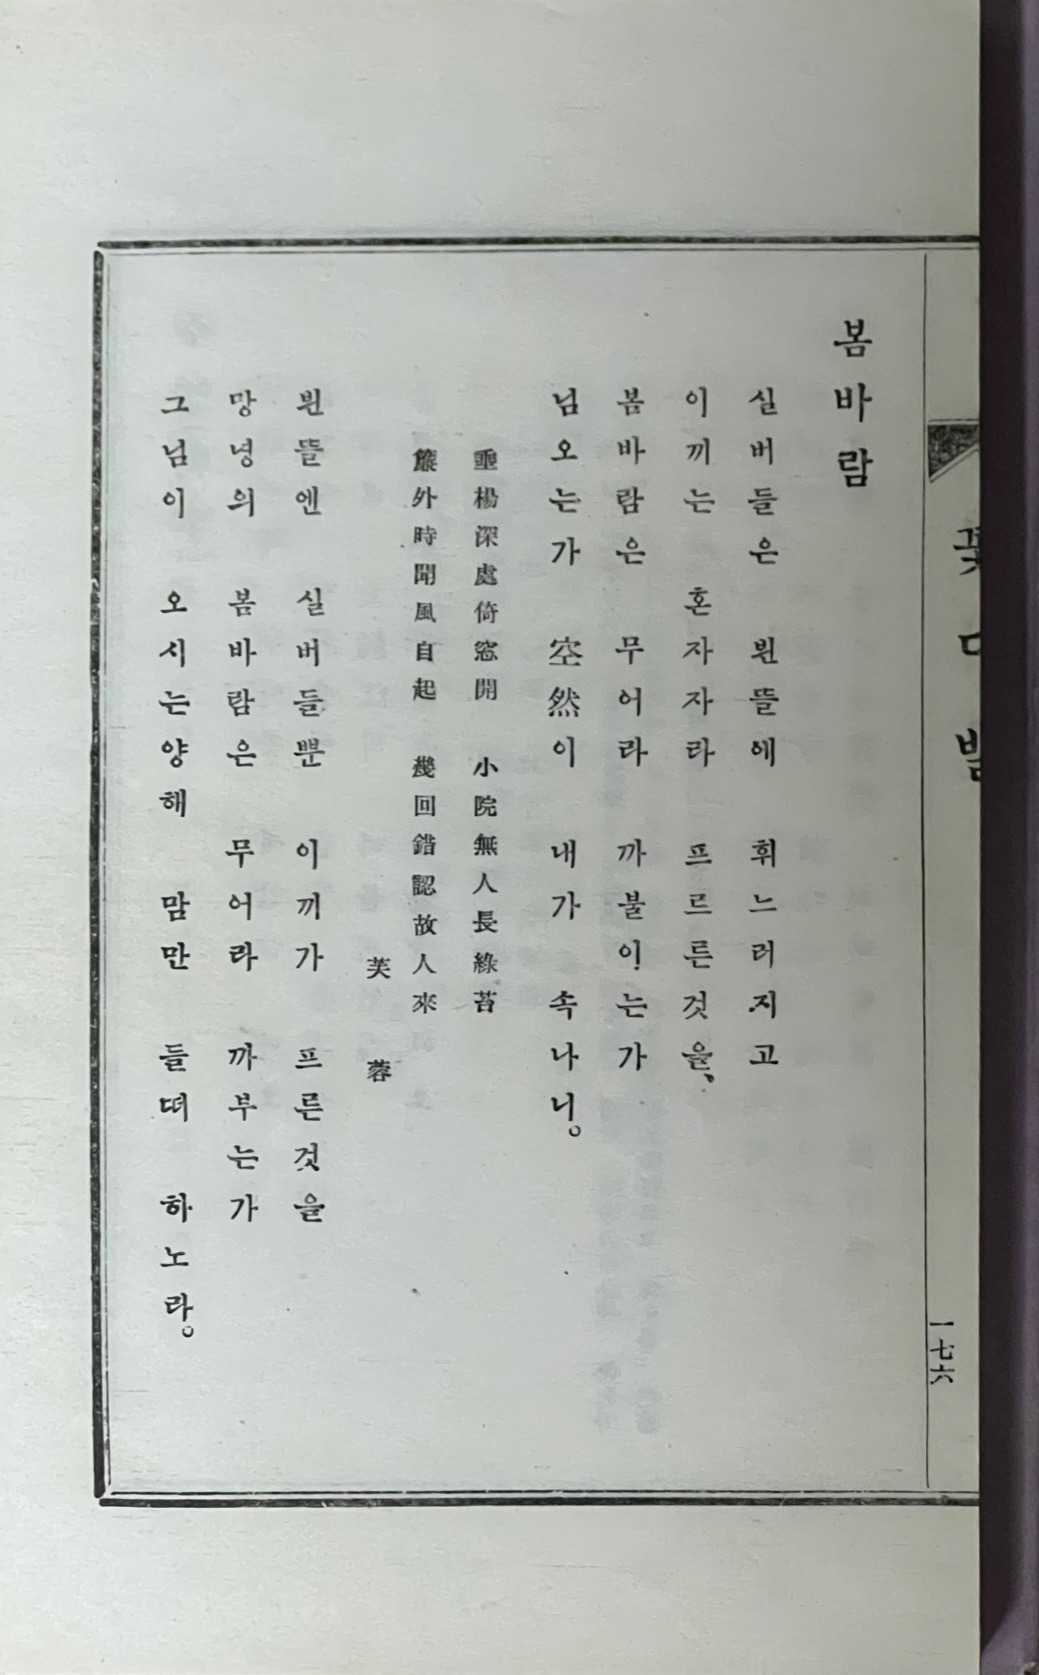 봄바람
실버들은 뷘뜰에 휘느러지고
이끼는 혼자자라 프르른것을、
봄바람은 무어라 까불이는가
님오는가 空然이 내가 속나니。
垂楊深處倚窓開 小院無人長綠苔
簾外時聞風自起 幾回錯認故人來
芙蓉
뷘뜰엔 실버들뿐 이끼가 프른것을
망녕의 봄바람은 무어라 까부는가
그님이 오시는양해 맘만 들떠 하노라。
一七六